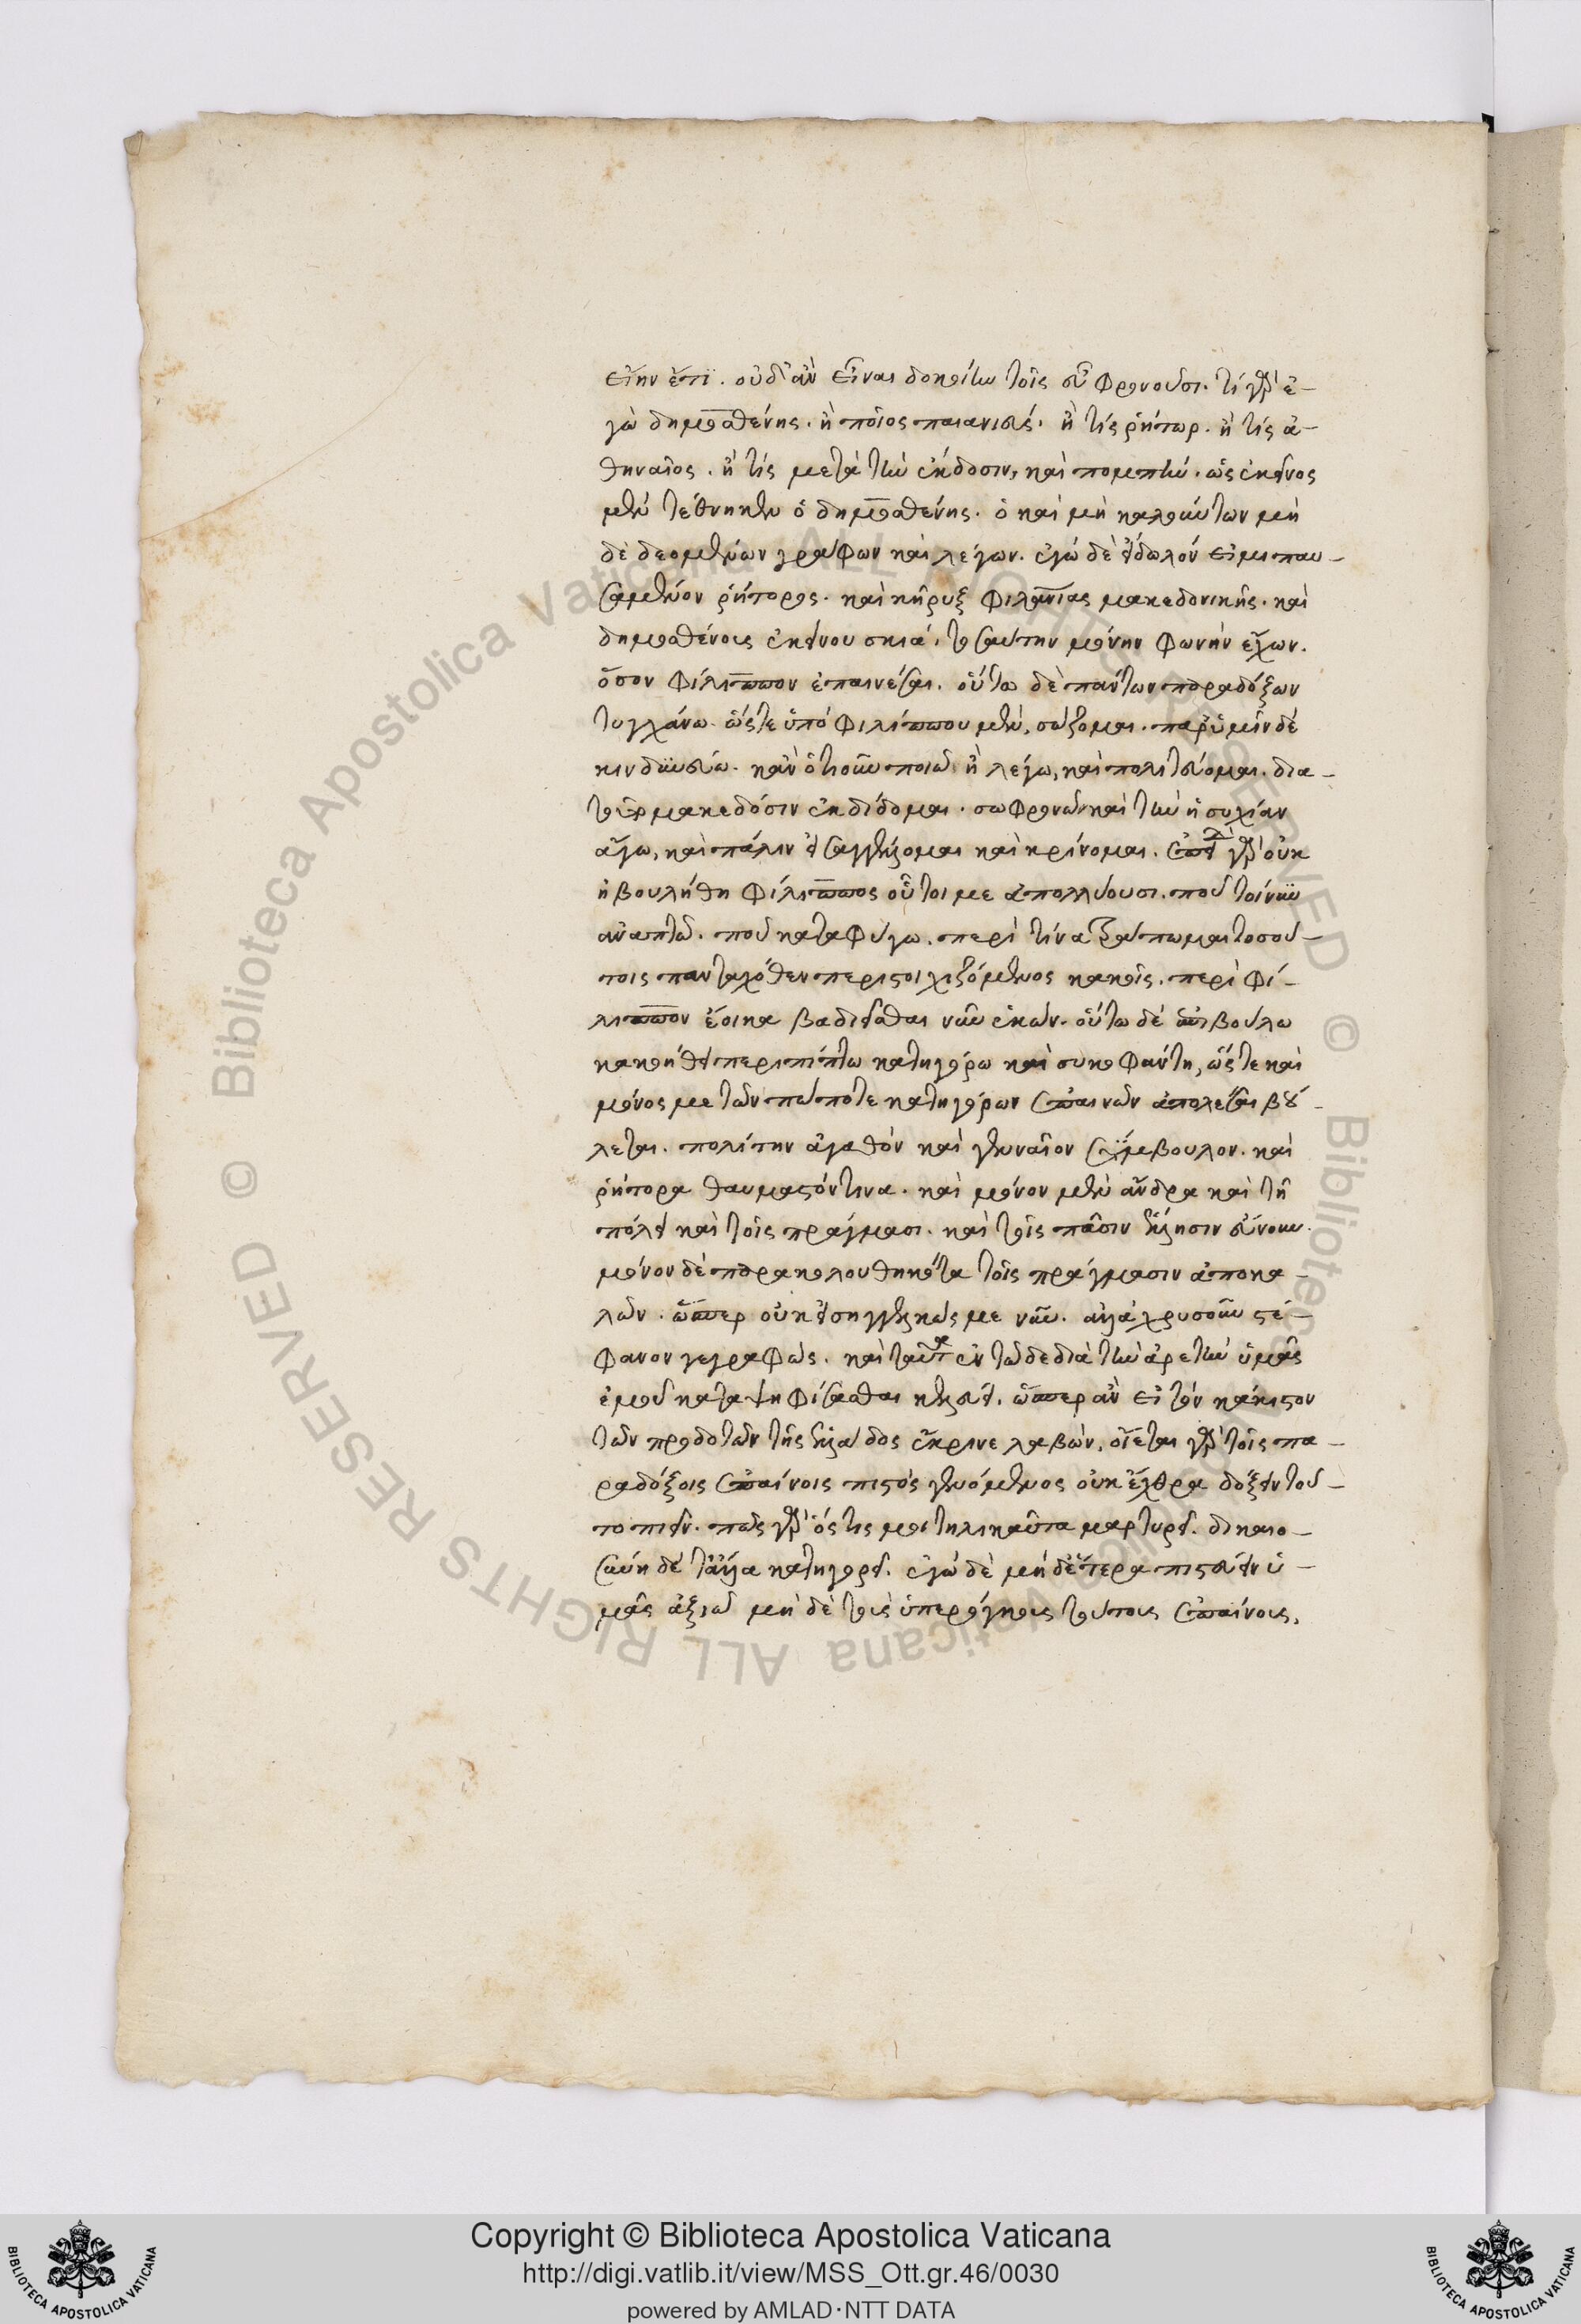 εἴην ἔτι. οὐδ' ἂν εἶναι δοκοίην τοῖς εὖ φρονοῦσι. τί γὰρ ἐ-
γὼ δημοσθένης. ἢ ποῖος παιανιεύς. ἢ τίς ῥήτωρ. ἢ τίς ἀ-
θηναῖος. ἢ τίς μετὰ τὴν ἔκδοσιν, καὶ πομπήν. ὡς ἐκεῖνος
μὲν τέθνηκεν ὁ δημοσθένης. ὁ καὶ μὴ καλούντων μη
δὲ δεομένων γράφων καὶ λέγων. ἐγὼ δὲ εἴδωλόν εἰμι παυ-
σαμένου ῥήτορος. καὶ κῆρυξ φιλανθρωπίας μακεδονικῆς. καὶ
δημοσθένους ἐκείνου σκιά, τοσαύτην μόνην φωνὴν ἔχων.
ὅσον φίλιππον ἐπαινέσαι. οὕτω δὲ πάντων παραδόξων
τυγχάνω. ὥστε ὑπὸ φιλίππου μὲν, σώζομαι. παρ' ὑμῖν δὲ
κινδυνεύω. κἂν ὁτιοῦν ποιῶ ἢ λέγω, καὶ πολιτεύομαι. διὰ
τοῦτο μακεδόσιν ἐκδίδομαι. σωφρονῶ καὶ τὴν ἡσυχίαν
ἄγω, καὶ πάλιν εἰσαγγέλλομαι καὶ κρίνομαι. ἐπεὶ γὰρ οὐκ
ἠβουλήθη φίλιππος οὗτοι με ἀπολλύουσι. ποῦ τοίνυν
ἀναπτῶ. ποῦ καταφύγω. περὶ τίνα τράπωμαι τοσού-
τοις πανταχόθεν περιστοιχιζόμενος κακοῖς. περὶ φί-
λιππον ἔοικα βαδιεῖσθαι νῦν ἑκών. οὕτω δὲ ἐπιβούλω
κακοήθει περιπίπτω κατηγόρω καὶ συκοφάντη, ὥστε καὶ
μόνος με τῶν πώποτε κατηγόρων ἐπαινῶν ἀπολέσαι βού-
λεται. πολίτην ἀγαθὸν καὶ γενναῖον σύμβουλον. καὶ
ῥήτορα θαυμαστόν τινα. καὶ μόνον μὲν ἄνδρα καὶ τῆ
πόλει καὶ τοῖς πράγμασι. καὶ τοῖς πᾶσιν ἕλλησιν εὔνουν.
μόνον δὲ παρακολουθηκότα τοῖς πράγμασιν ἀποκα-
λῶν. ὥσπερ οὐκ εἰσηγγελκώς με νῦν. ἀλλὰ χρυσοῦν στέ-
φανον γεγραφώς. καὶ ταῦτα ἐν τῶδε διὰ τὴν ἀρετὴν ὑμᾶς
ἐμοῦ καταψηφίσασθαι κελεύει. ὥσπερ ἂν εἰ τὸν κάκιστον
τῶν προδοτῶν τῆς ἑλλάδος ἔκρινε λαβών. οἴεται γὰρ τοῖς πα-
ραδόξοις ἐπαίνοις πιστὸς γενόμενος οὐκ ἔχθρα δόξειν τοῦ-
το ποιεῖν. πῶς γὰρ ὅς τις μοι τηλικαῦτα μαρτυρεῖ. δικαιο-
σύνη δὲ τἄλλα κατηγορεῖ. ἐγὼ δὲ μηδέτερα πιστεύειν ὑ-
μᾶς ἀξιῶ μὴ δὲ τοὺς ὑπερόγκους τούτους ἐπαίνους,
Copyright © Biblioteca Apostolica Vaticana
http://digi.vatlib.it/view/MSS_Ott.gr.46/0030
powered by AMLAD·NTT DATA
© Biblioteca Apostolica Vaticana ALL RIGHTS RESERVED
© Biblioteca Apostolica Vaticana ALL RIGHTS RESERVED
BIBLIOTECA APOSTOLICA VATICANA
BIBLIOTECA APOSTOLICA VATICANA